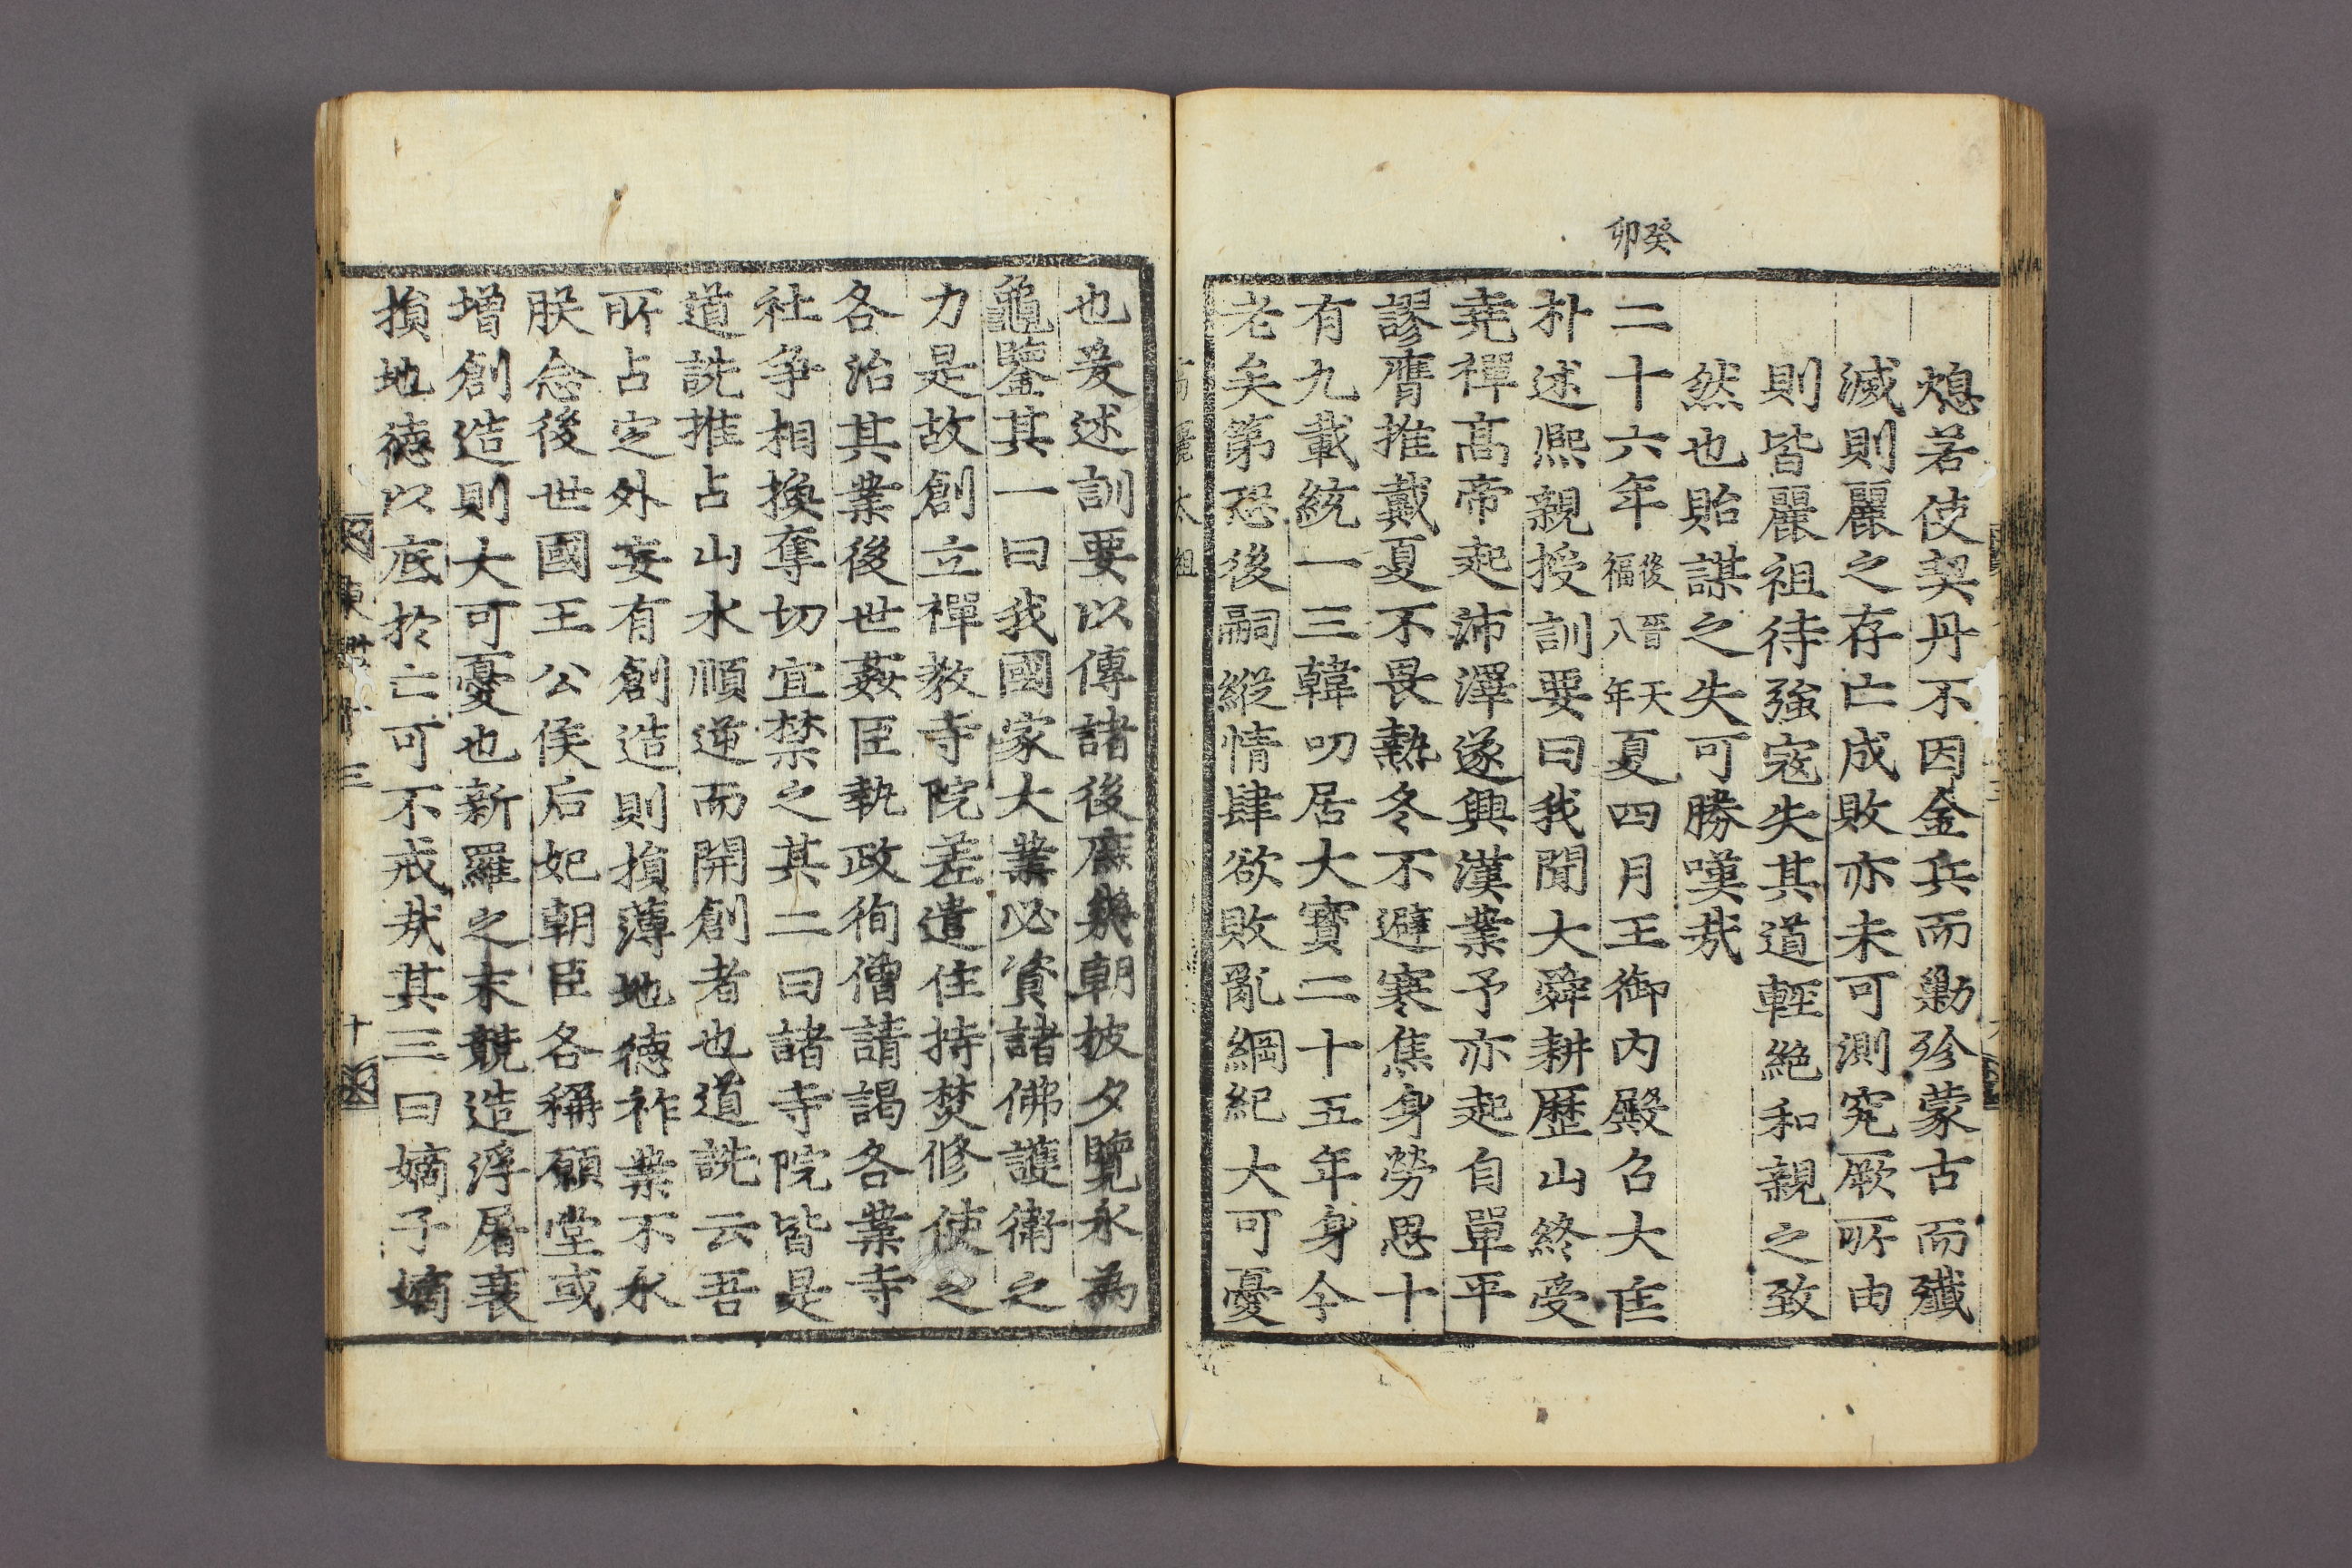 癸卯
熄若使契丹不因金兵而勦殄蒙古而殲
滅則麗之存亡成敗亦未可測究厥所由
則皆麗祖待強寇失其道輕絶和親之致
然也貽謀之失可勝嘆㦲
二十六年後晉天福八年夏四月王御內殿召大匡
朴述熙親授訓要曰我聞大舜耕歷山終受
堯禪高帝起沛澤遂興漢業予亦起自單平
謬膺推戴夏不畏熱冬不避寒焦身勞思十
有九載統一三韓叨居大寶二十五年身今
老矣第恐後嗣縱情肆欲敗亂綱紀大可憂
高麗太祖
也爰述訓要以傳諸後庶幾朝披夕覽永爲
龜鑒其一曰我國家大業必資諸佛護衛之
力是故創立禪教寺院差遣住持焚修使之
各治其業後世姦臣執政徇僧請謁各業寺
社爭相換奪切宜禁之其二曰諸寺院皆是
道詵推占山水順逆而開創者也道詵云吾
所占定外妄有創造則損薄地德祚業不永
朕念後世國王公侯后妃朝臣各稱願堂或
增創造則大可憂也新羅之末競造浮屠衰
損地德以底於亡可不戒㦲其三曰嫡子嫡
三
十